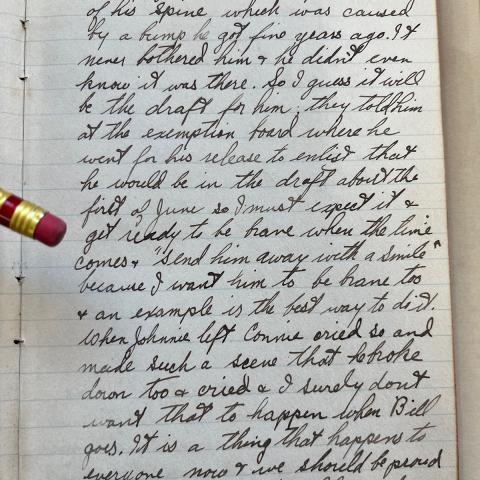 of his spine, which was caused
by a bump he got five years ago. It
never bothered him & he didn't even
know it was there. So I guess it will
be the draft for him; they told him
at the exemption board where he
went for his release to enlist that
he would be in the draft about the
first of June so I must expect it &
get ready to be brave when the time
comes & "send him away with a smile"
because I want him to be brave too
& an example is the best way to do it.
When Johnnie left Connie cried so and
made such a scene that he broke
down too & cried & I surely don't
want that to happen when Bill
goes. It is a thing that happens to
everyone now & we should be proud